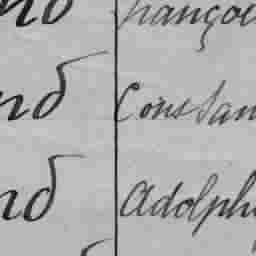 nd françoi
nd Constan
nd Adolph